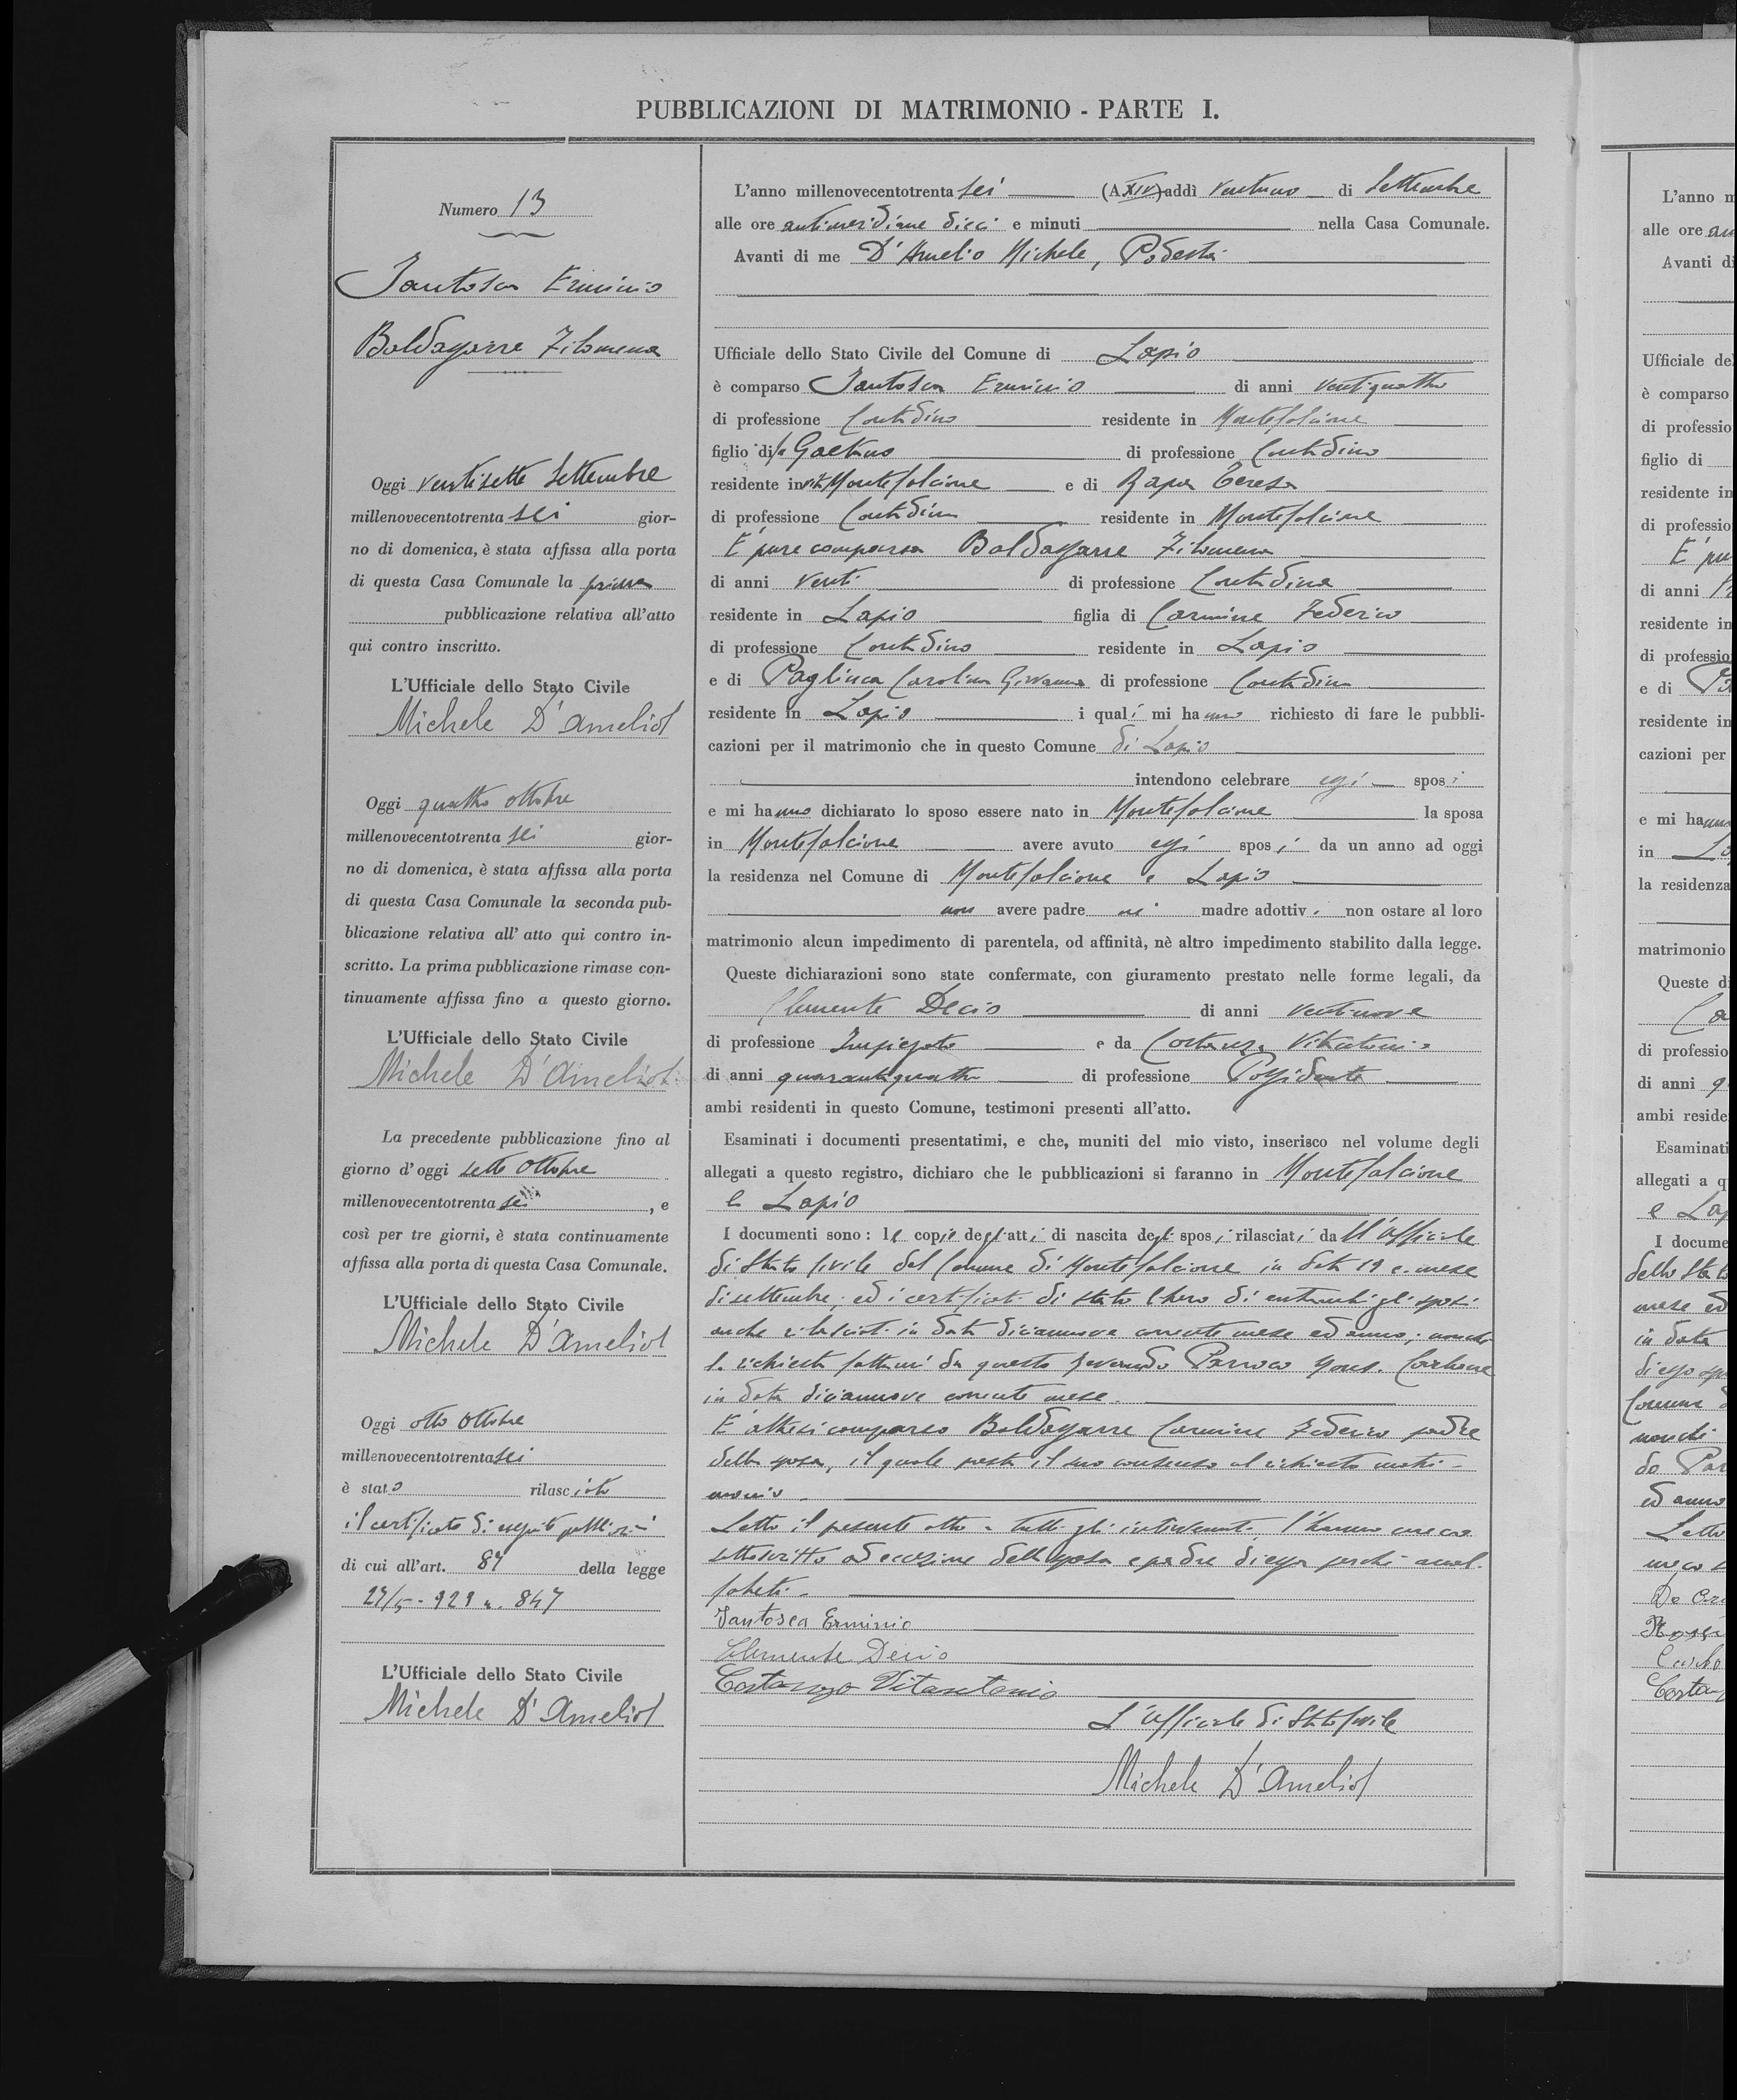 PUBBLICAZIONI DI MATRIMONIO - PARTE I.
Numero 13
Santosa Erminio
Baldassarre Filomena
Oggi ventisette Settembre
millenovecentotrenta sei gior-
no di domenica, è stata affissa alla porta
di questa Casa Comunale la prima
pubblicazione relativa all'atto
qui contro inscritto.
L'Ufficiale dello Stato Civile
Michele D'Amelio
Oggi quattro ottobre
millenovecentotrenta sei gior-
no di domenica, è stata affissa alla porta
di questa Casa Comunale la seconda pub-
blicazione relativa all'atto qui contro in-
scritto. La prima pubblicazione rimase con-
tinuamente affissa fino a questo giorno.
L'Ufficiale dello Stato Civile
Michele D'Amelio
La precedente pubblicazione fino al
giorno d'oggi sette Ottobre
millenovecentotrenta sei , e
così per tre giorni, è stata continuamente
affissa alla porta di questa Casa Comunale.
L'Ufficiale dello Stato Civile
Michele D'Amelio
Oggi otto Ottobre
millenovecentotrenta sei
è stato rilasciato
il certificato di eseguite
di cui all'art. 87 della legge
27/5-929 n. 847
L'Ufficiale dello Stato Civile
Michele D'Amelio
L'anno millenovecentotrenta sei (A XIV) addì ventuno di Settembre
alle ore antimeridiane dieci e minuti nella Casa Comunale.
Avanti di me D'Amelio Michele, Podestà
Ufficiale dello Stato Civile del Comune di Lapio
è comparso Santosa Erminio di anni ventiquattro
di professione Contadino residente in Montefalcione
figlio di fu Gaetano di professione Contadino
residente in vita Montefalcione e di Rapa Teresa
di professione Contadina residente in Montefalcione
È pure comparsa Baldassarre Filomena
di anni venti di professione Contadina
residente in Lapio figlia di Carmine Federico
di professione Contadino residente in Lapio
e di Pagliuca Carolina Giovanna di professione Contadina
residente in Lapio i quali mi hanno richiesto di fare le pubbli-
cazioni per il matrimonio che in questo Comune di Lapio
intendono celebrare essi sposi
e mi hanno dichiarato lo sposo essere nato in Montefalcione la sposa
in Montefalcione avere avuto essi sposi da un anno ad oggi
la residenza nel Comune di Montefalcione e Lapio
non avere padre nè madre adottivi non ostare al loro
matrimonio alcun impedimento di parentela, od affinità, nè altro impedimento stabilito dalla legge.
Queste dichiarazioni sono state confermate, con giuramento prestato nelle forme legali, da
Clemente Decio di anni ventinove
di professione Impiegato e da Costanza Vitantonio
di anni quarantaquattro di professione Possidente
ambi residenti in questo Comune, testimoni presenti all'atto.
Esaminati i documenti presentatimi, e che, muniti del mio visto, inserisco nel volume degli
allegati a questo registro, dichiaro che le pubblicazioni si faranno in Montefalcione
e Lapio
I documenti sono: le copie degli atti di nascita degli sposi, rilasciati dall'Ufficiale
di Stato Civile del Comune di Montefalcione in data 19 c. mese
di settembre; ed i certificati di stato libero di entrambi gli sposi
anche rilasciati in data diciannove corrente mese ed anno; nonché
la richiesta fattami da questo Reverendo Parroco Carbone
in data diciannove corrente mese.
È altresì comparso Baldassarre Carmine Federico padre
della sposa, il quale presta il suo consenso al richiesto matri-
monio.
Letto il presente atto a tutti gli intervenuti l'hanno meco
sottoscritto ad eccezione della sposa e padre di essa perchè anal-
fabeti.
Santosa Erminio
Clemente Decio
Costanza Vitantonio
L'Ufficiale di Stato Civile
Michele D'Amelio
L'anno m
alle ore
Avanti di
Ufficiale del
è comparso
di professio
figlio di
residente in
di professio
È pu
di anni
residente in
di professio
e di
residente in
cazioni per
e mi hanno
in
la residenza
matrimonio
Queste di
di professio
di anni
ambi reside
Esaminati
allegati a q
e Lap
I docume
dello Sta
mese ed
in data
di
Comune
nonché
da Par
ed anno
Letto
meco